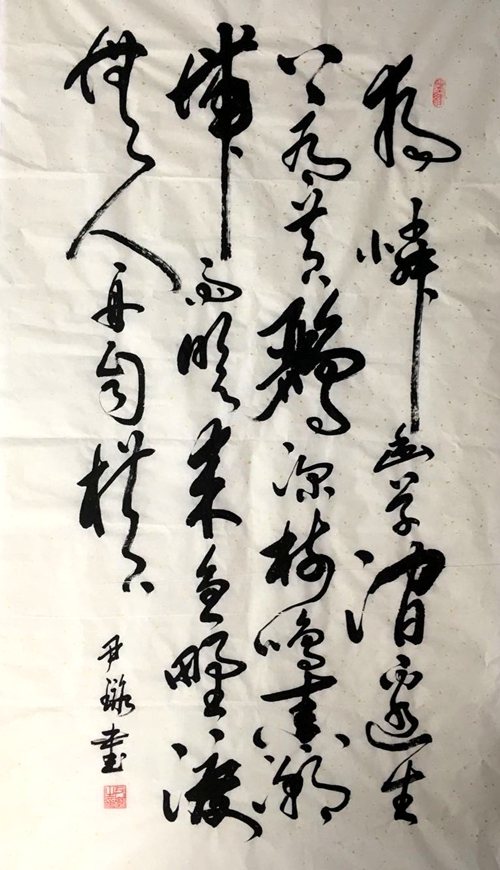 獨憐幽草澗邊生
上有黃鸝深樹鳴春潮
帶雨晚來急野渡
無人舟自橫
尹書